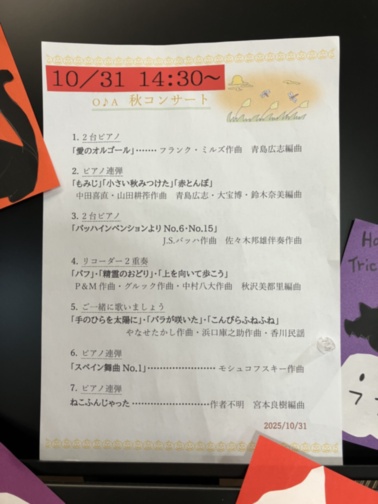 10/31 14:30～
O♪A 秋コンサート
1. 2台ピアノ
「愛のオルゴール」‥‥‥ フランク・ミルズ作曲 青島広志編曲
2. ピアノ連弾
「もみじ」「小さい秋みつけた」「赤とんぼ」
中田喜直・山田耕筰作曲 青島広志・大宝博・鈴木奈美編曲
3. 2台ピアノ
「バッハインベンションより No.6・No.15」
J.S.バッハ作曲 佐々木邦雄伴奏作曲
4. リコーダー2重奏
「パフ」・「精霊のおどり」・「上を向いて歩こう」
P&M作曲・グルック作曲・中村八大作曲 秋沢美都里編曲
5. ご一緒に歌いましょう
「手のひらを太陽に」・「バラが咲いた」・「こんぴらふねふね」
やなせたかし作曲・浜口庫之助作曲・香川民謡
6. ピアノ連弾
「スペイン舞曲 No.1」‥‥‥‥‥‥‥‥ モシュコフスキー作曲
7. ピアノ連弾
ねこふんじゃった ‥‥‥‥‥‥‥‥作者不明 宮本良樹編曲
2025/10/31
Ha
Tric